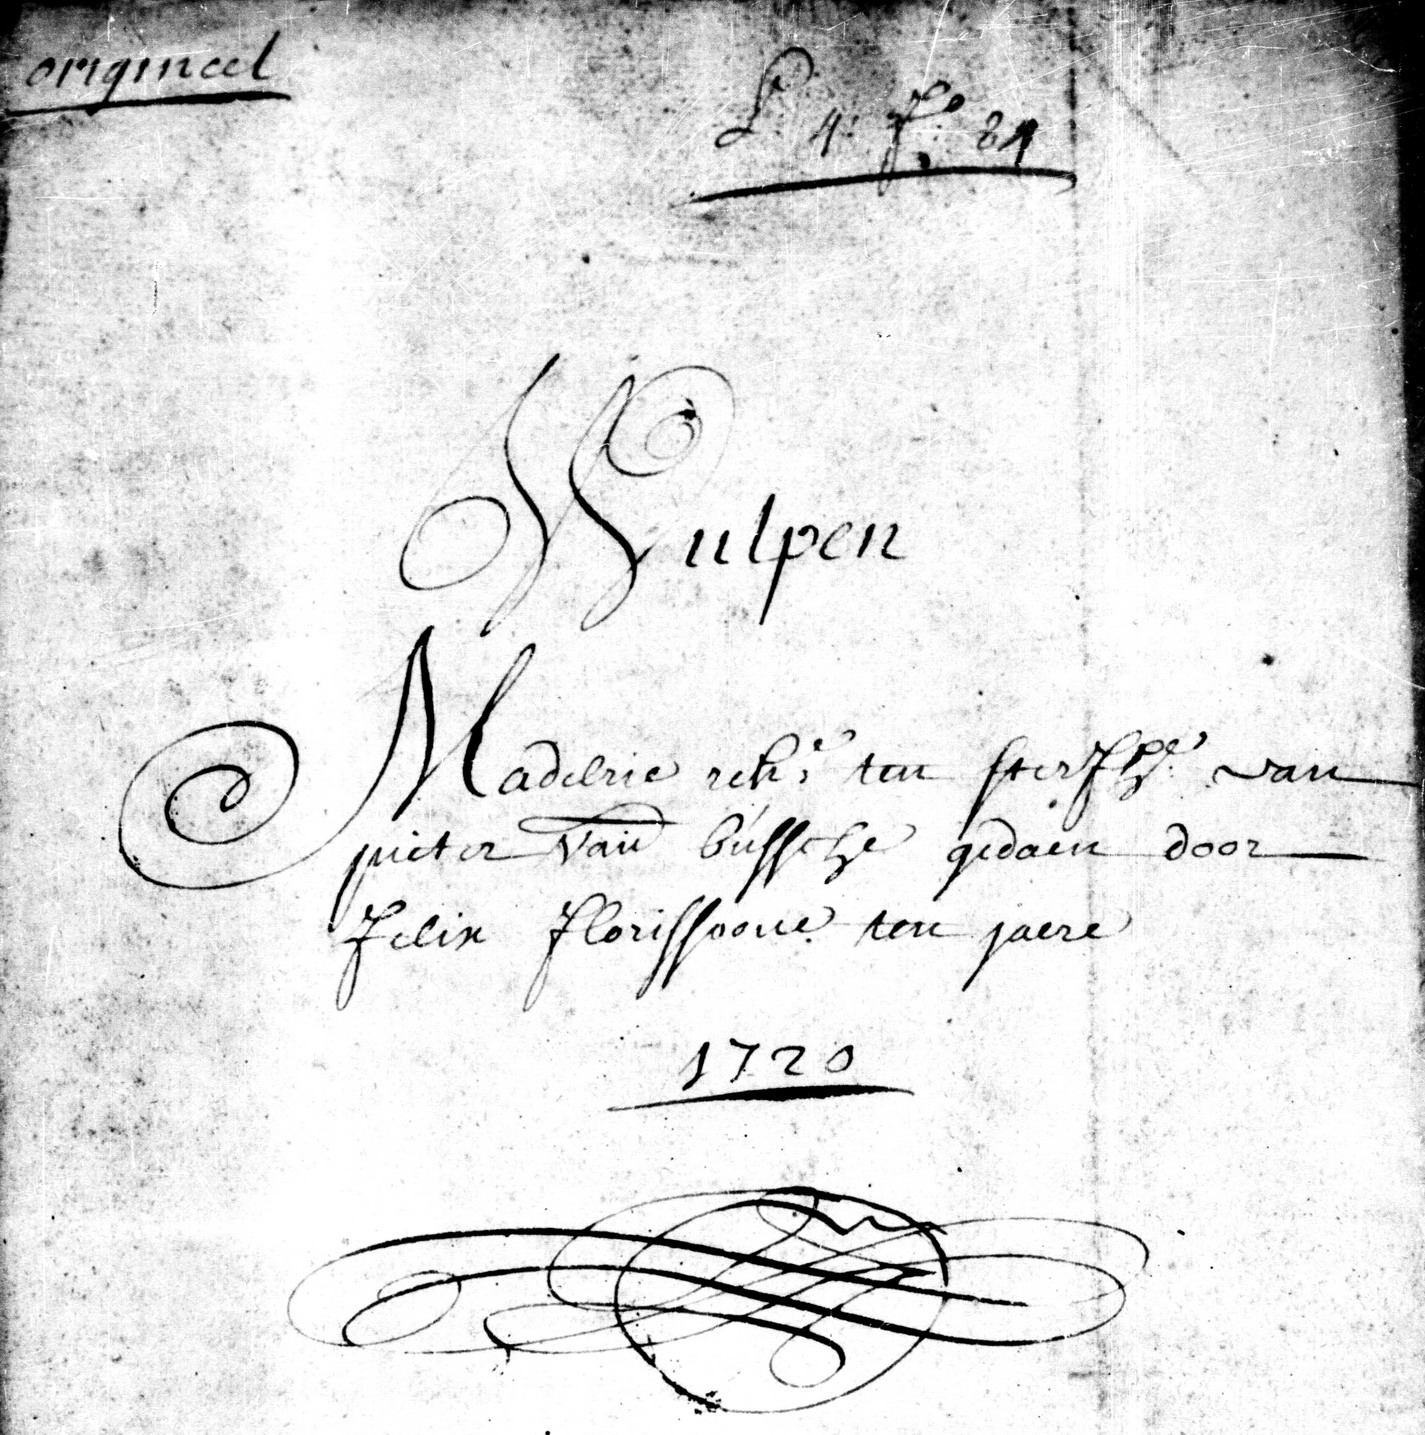 origineel
L: 4: f:o 84
Wulpen
Madelrie rek:e ten sterfh:e van
pieter van bussche gedaen door
Felix Florissoone ten jaere
1720